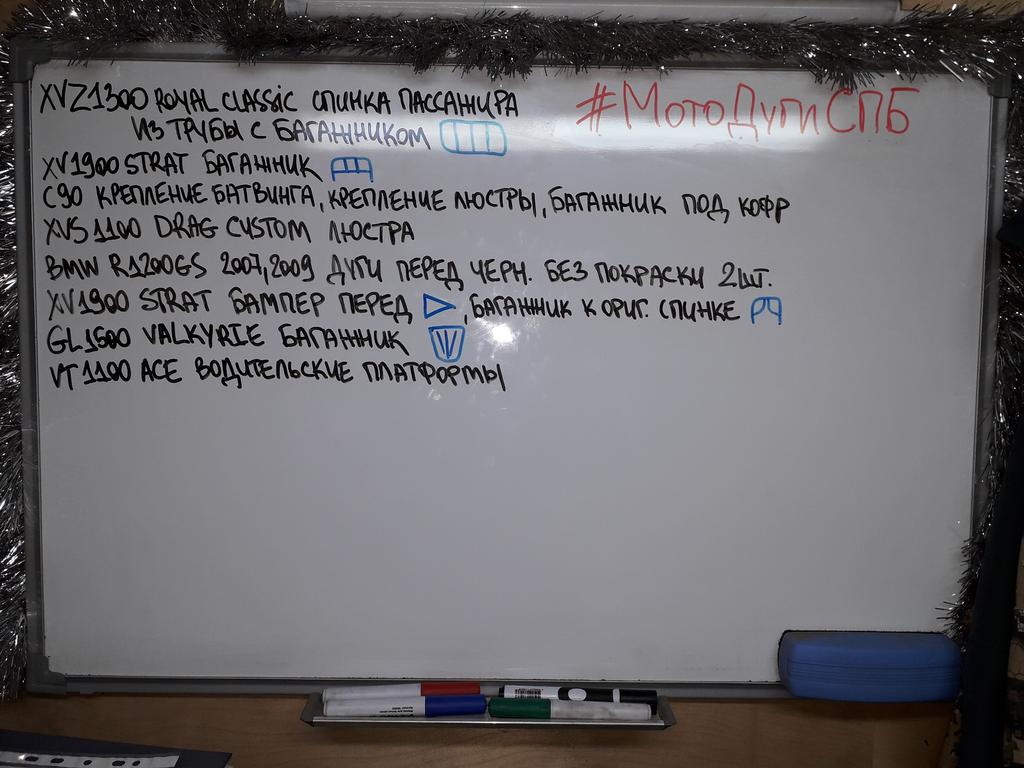 XVZ1300 ROYAL CLASSIC СПИНКА ПАССАЖИРА
#МотоДугиСПБ
ИЗ ТРУБЫ С БАГАЖНИКОМ
XV1900 STRAT БАГАЖНИК
C90 КРЕПЛЕНИЕ БАТВИНГА, КРЕПЛЕНИЕ ЛЮСТРЫ, БАГАЖНИК ПОД КОФР
XVS1100 DRAG CUSTOM ЛЮСТРА
BMW R1200GS 2007, 2009 ДУГИ ПЕРЕД ЧЕРН. БЕЗ ПОКРАСКИ 2ШТ.
XV1900 STRAT БАМПЕР ПЕРЕД , БАГАЖНИК К ОРИГ. СПИНКЕ
GL1500 VALKYRIE БАГАЖНИК
VT1100 ACE ВОДИТЕЛЬСКИЕ ПЛАТФОРМЫ